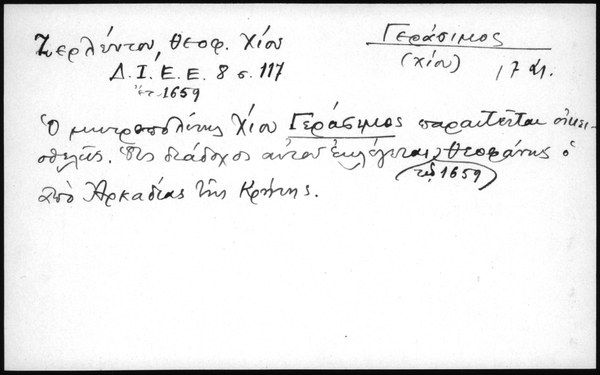 Ζερλέντου, Θεοφ. Χίου
Γεράσιμος
(Χίου)
17 αι.
Δ. Ι. Ε. Ε. 8 σ. 117
ἔτ. 1659
Ὁ μητροπολίτης Χίου Γεράσιμος παραιτεῖται οἰκει-
οθελῶς. Ὡς διάδοχος αὐτοῦ ἐκλέγεται Θεοφάνης ὁ
τῷ 1659
ἀπὸ Ἀρκαδίας τῆς Κρήτης.